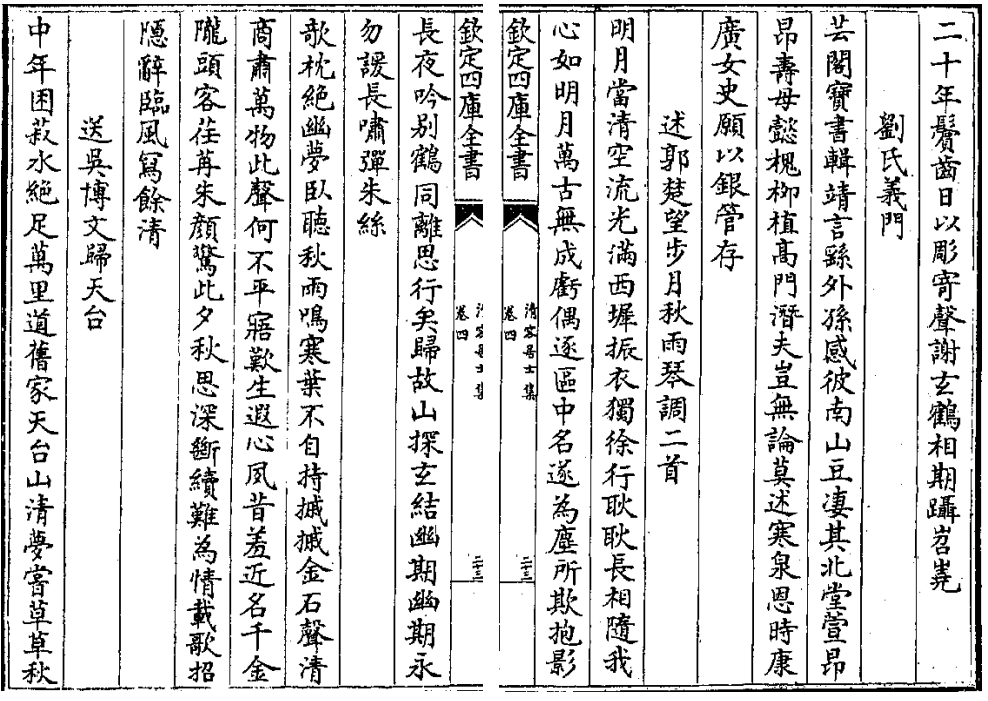 二十年鬢齒日以彫寄聲謝玄鶴相期躡岧嶤
劉氏義門
芸閣寶書輯靖言繇外孫感彼南山豆凄其北堂萱昂
昂壽母懿槐柳植髙門潛夫豈無論莫述寒泉恩時康
廣女史願以銀管存
述郭楚望步月秋雨琴調二首
明月當清空流光滿西墀振衣獨徐行耿耿長相隨我
心如明月萬古無成虧偶逐區中名遂為塵所欺抱影
欽定四庫全書
清容居士集
卷四
二十三
欽定四庫全書
清容居士集
卷四
二十三
長夜吟别鶴同離思行矣歸故山探玄結幽期幽期永
勿諼長嘯彈朱絲
欹枕絶幽夢臥聽秋雨鳴寒葉不自持摵摵金石聲清
商肅萬物此聲何不平寤歎生遐心夙昔羞近名千金
隴頭客荏苒朱顔驚此夕秋思深斷續難為情載歌招
隱辭臨風寫餘清
送吳博文歸天台
中年困菽水絶足萬里道舊家天台山清夢嘗草草秋